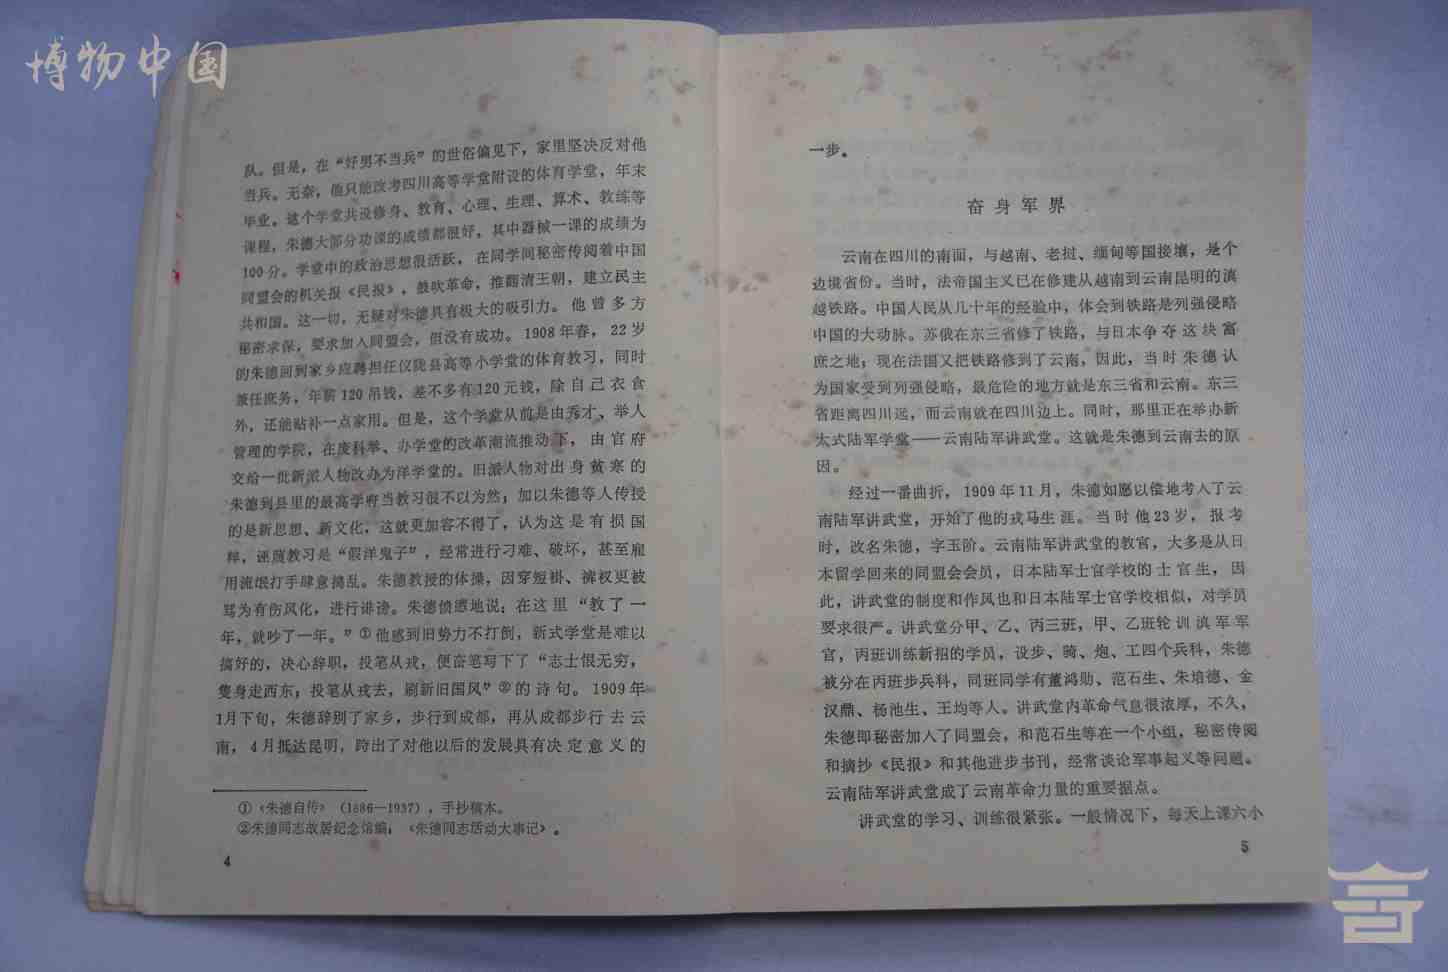 博物中国
队。但是，在“好男不当兵”的世俗偏见下，家里坚决反对他
当兵。无奈，他只能改考四川高等学堂附设的体育学堂，年末
毕业。这个学堂共设修身、教育、心理、生理、算术、教练等
课程，朱德大部分功课的成绩都很好，其中器械一课的成绩为
100分。学堂中的政治思想很活跃，在同学间秘密传阅着中国
同盟会的机关报《民报》，鼓吹革命，推翻清王朝，建立民主
共和国。这一切，无疑对朱德具有极大的吸引力。他曾多方
秘密求保，要求加入同盟会，但没有成功。1908年春，22岁
的朱德回到家乡应聘担任仪陇县高等小学堂的体育教习，同时
兼任庶务，年薪120吊钱，差不多有120元钱，除自己衣食
外，还能贴补一点家用。但是，这个学堂从前是由秀才、举人
管理的学院，在废科举、办学堂的改革潮流推动下，由官府
交给一批新派人物改办为洋学堂的。旧派人物对出身贫寒的
朱德到县里的最高学府当教习很不以为然；加以朱德等人传授
的是新思想、新文化，这就更加容不得了，认为这是有损国
粹，诬蔑教习是“假洋鬼子”，经常进行刁难、破坏，甚至雇
用流氓打手肆意捣乱。朱德教授的体操，因穿短褂、裤衩更被
骂为有伤风化，进行诽谤。朱德愤懑地说：在这里“教了一
年，就吵了一年。”①他感到旧势力不打倒，新式学堂是难以
搞好的，决心辞职，投笔从戎，便奋笔写下了“志士恨无穷，
隻身走西东；投笔从戎去，刷新旧国风”②的诗句。1909年
1月下旬，朱德辞别了家乡，步行到成都，再从成都步行去云
南，4月抵达昆明，跨出了对他以后的发展具有决定意义的
①《朱德自传》（1886—1937），手抄稿本。
②朱德同志故居纪念馆编：《朱德同志活动大事记》。
4
一步。
奋身军界
云南在四川的南面，与越南、老挝、缅甸等国接壤，是个
边境省份。当时，法帝国主义已在修建从越南到云南昆明的滇
越铁路。中国人民从几十年的经验中，体会到铁路是列强侵略
中国的大动脉。苏俄在东三省修了铁路，与日本争夺这块富
庶之地；现在法国又把铁路修到了云南，因此，当时朱德认
为国家受到列强侵略，最危险的地方就是东三省和云南。东三
省距离四川远，而云南就在四川边上。同时，那里正在举办新
太式陆军学堂——云南陆军讲武堂。这就是朱德到云南去的原
因。
经过一番曲折，1909年11月，朱德如愿以偿地考入了云
南陆军讲武堂，开始了他的戎马生涯。当时他23岁，报考
时，改名朱德，字玉阶。云南陆军讲武堂的教官，大多是从日
本留学回来的同盟会会员，日本陆军士官学校的士官生，因
此，讲武堂的制度和作风也和日本陆军士官学校相似，对学员
要求很严。讲武堂分甲、乙、丙三班，甲、乙班轮训滇军军
官，丙班训练新招的学员，设步、骑、炮、工四个兵科，朱德
被分在丙班步兵科，同班同学有董鸿勋、范石生、朱培德、金
汉鼎、杨池生、王均等人。讲武堂内革命气息很浓厚，不久，
朱德即秘密加入了同盟会，和范石生等在一个小组，秘密传阅
和摘抄《民报》和其他进步书刊，经常谈论军事起义等问题。
云南陆军讲武堂成了云南革命力量的重要据点。
讲武堂的学习、训练很紧张。一般情况下，每天上课六小
5